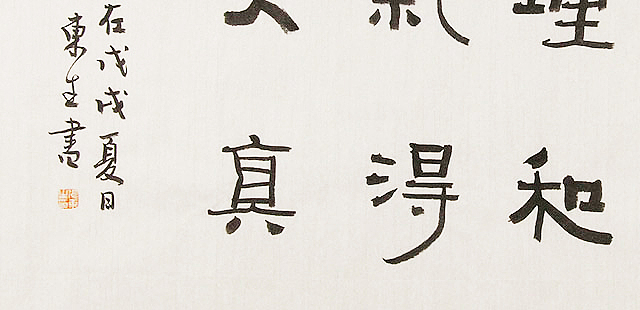 理和
氣得
真
在戊戌夏日
東書